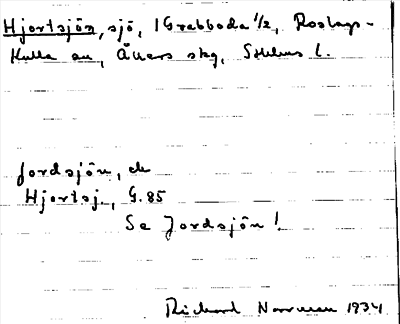 Hjortsjön, sjö, 1 Grabboda 1/2, Roslags-
Kulla sn, Åkers skg, Sthlms l.
Jordsjön, ek
Hjortsj., G. 85
Se Jordsjön!
Richard Norrman 1934